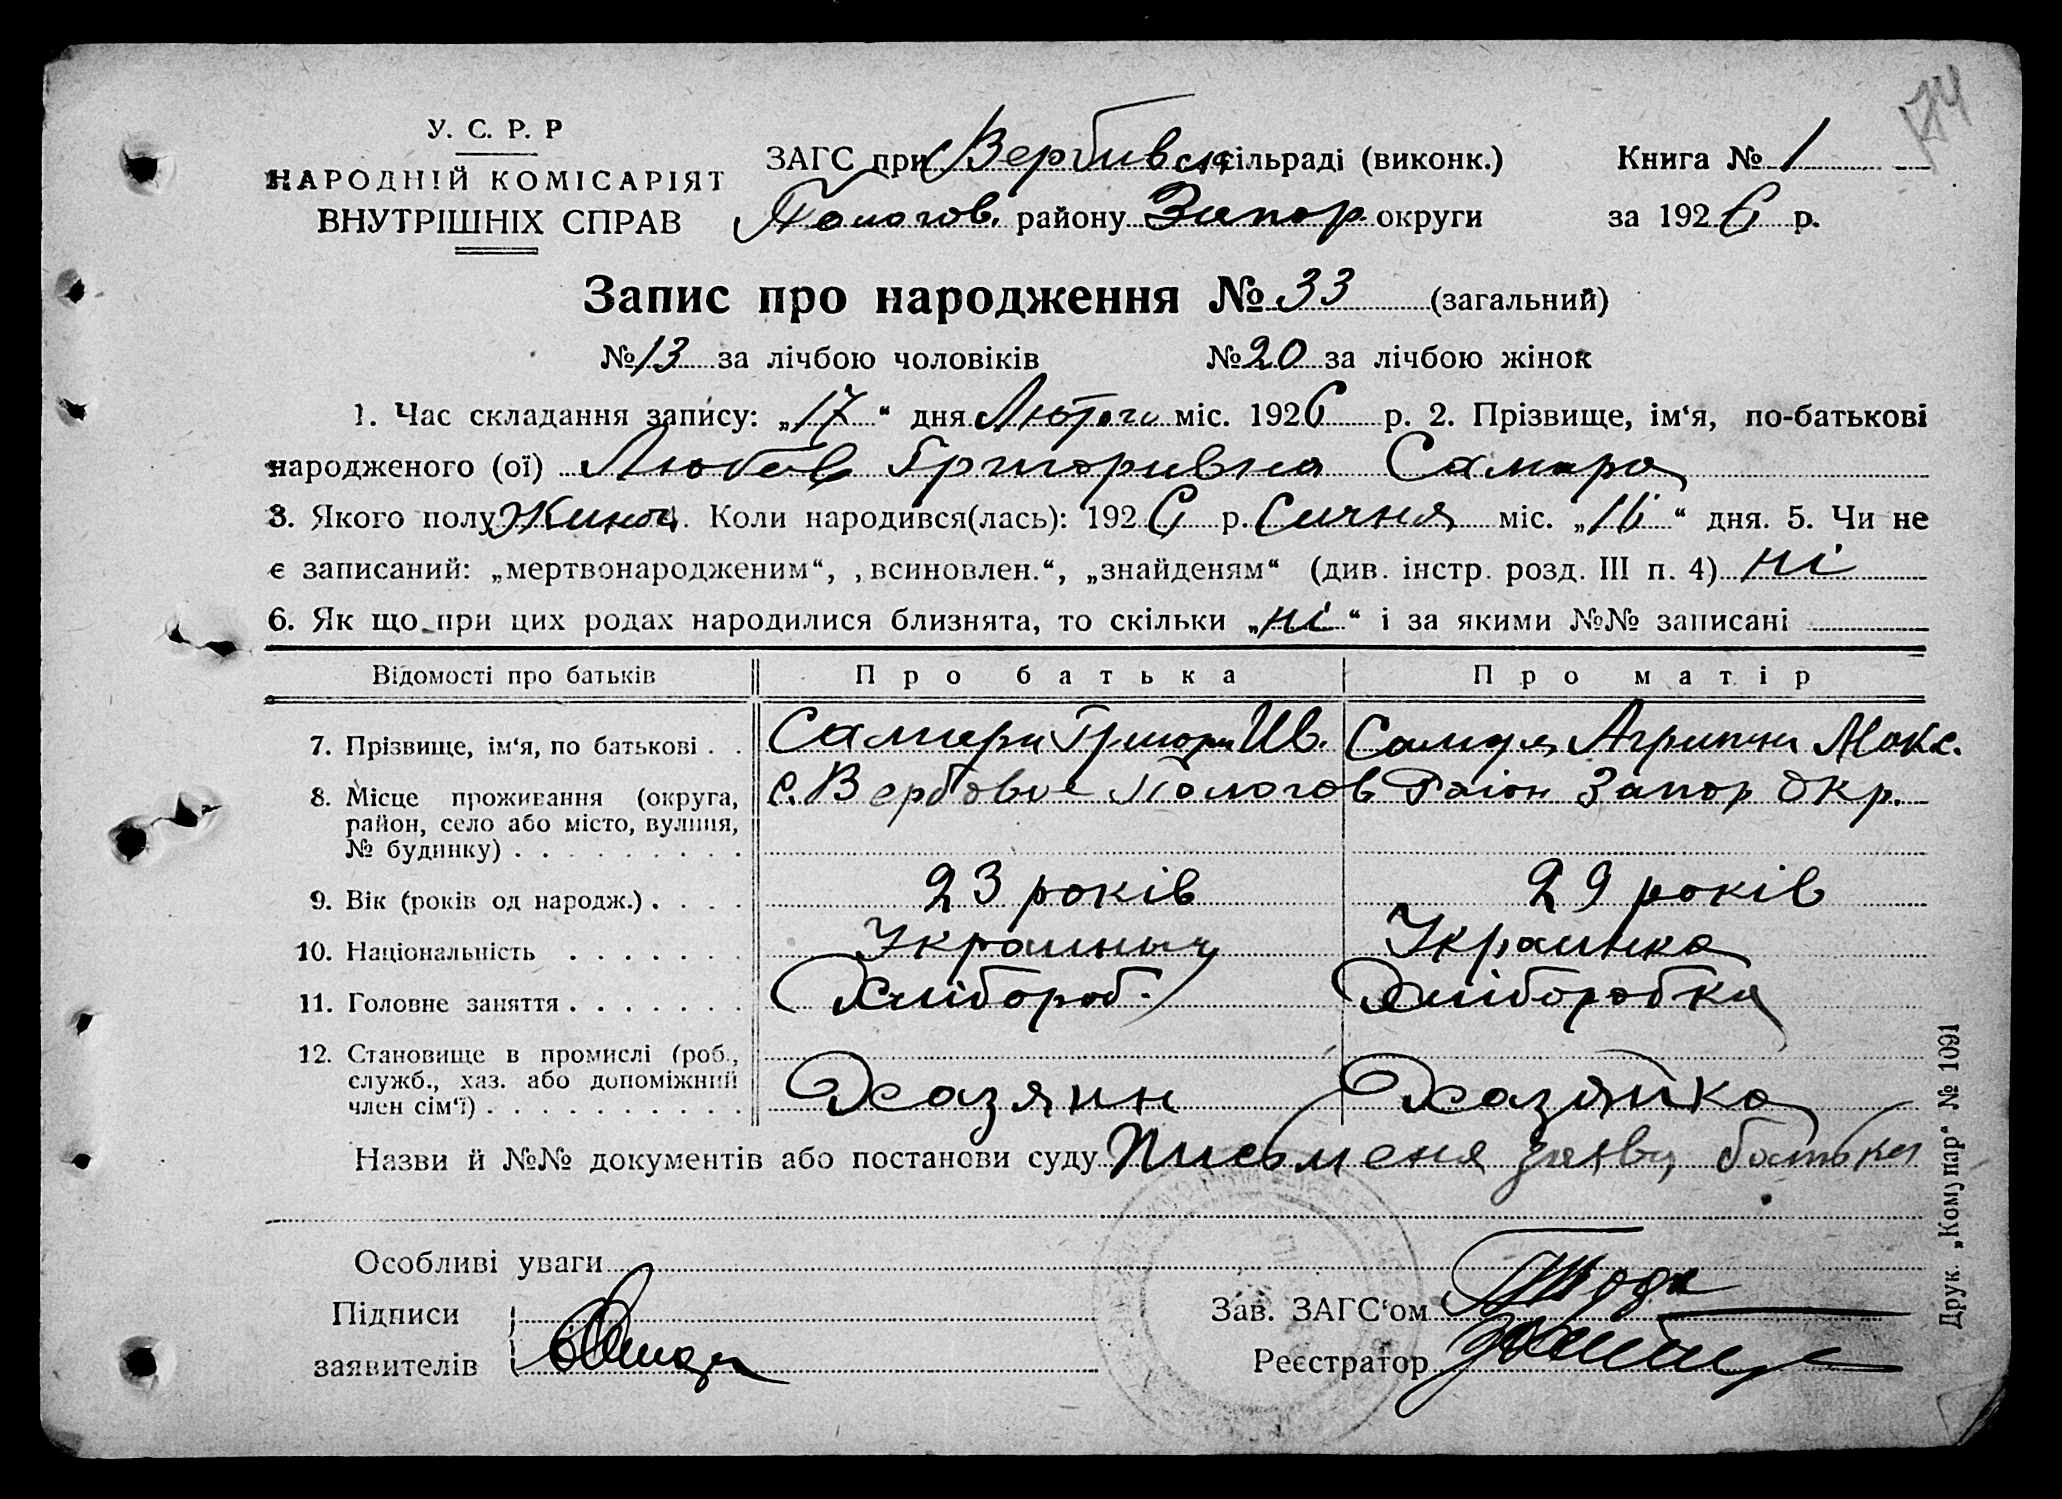 174
У. С. Р. Р
НАРОДНІЙ КОМІСАРІЯТ
ВНУТРІШНІХ СПРАВ
ЗАГС при Вербивск сільраді (виконк.) Книга № 1
Пологов. району Запор. округи за 1926 р.
Запис про народження № 33 (загальний)
№ 13 за лічбою чоловіків № 20 за лічбою жінок
1. Час складання запису: „17“ дня Лютого міс. 1926 р. 2. Прізвище, ім‘я, по-батькові
народженого (ої) Любов Григоривна Самара
3. Якого полу Жиноч. Коли народився(лась): 1926 р. Сичня міс. „16“ дня. 5. Чи не
є записаний: „мертвонародженим“, „всиновлен.“, „знайденям“ (див. інстр. розд. III п. 4) ні
6. Як що при цих родах народилися близнята, то скільки „ні“ і за якими №№ записані
Відомості про батьків Про батька Про матір
7. Прізвище, ім‘я, по батькові . . Самара Григори Ив. Самара Агрипина Макс.
8. Місце проживання (округа, с. Вербове Пологов Район Запор Окр.
район, село або місто, вулиця,
№ будинку) . . . . . . . . .
9. Вік (років од народж.) . . . . 23 років 29 років
10. Національність . . . . . . . Украинець Украинка
11. Головне заняття . . . . . . . Хлібороб. Хліборобка
12. Становище в промислі (роб.,
служб., хаз. або допоміжний Хазяин Хазяйка
член сім‘ї) . . . . . . . . . . .
Назви й №№ документів або постанови суду Письменя заява батька
Особливі уваги
Підписи Зав. ЗАГС‘ом
заявителів Реєстратор
Друк. „Комунар“ № 1091